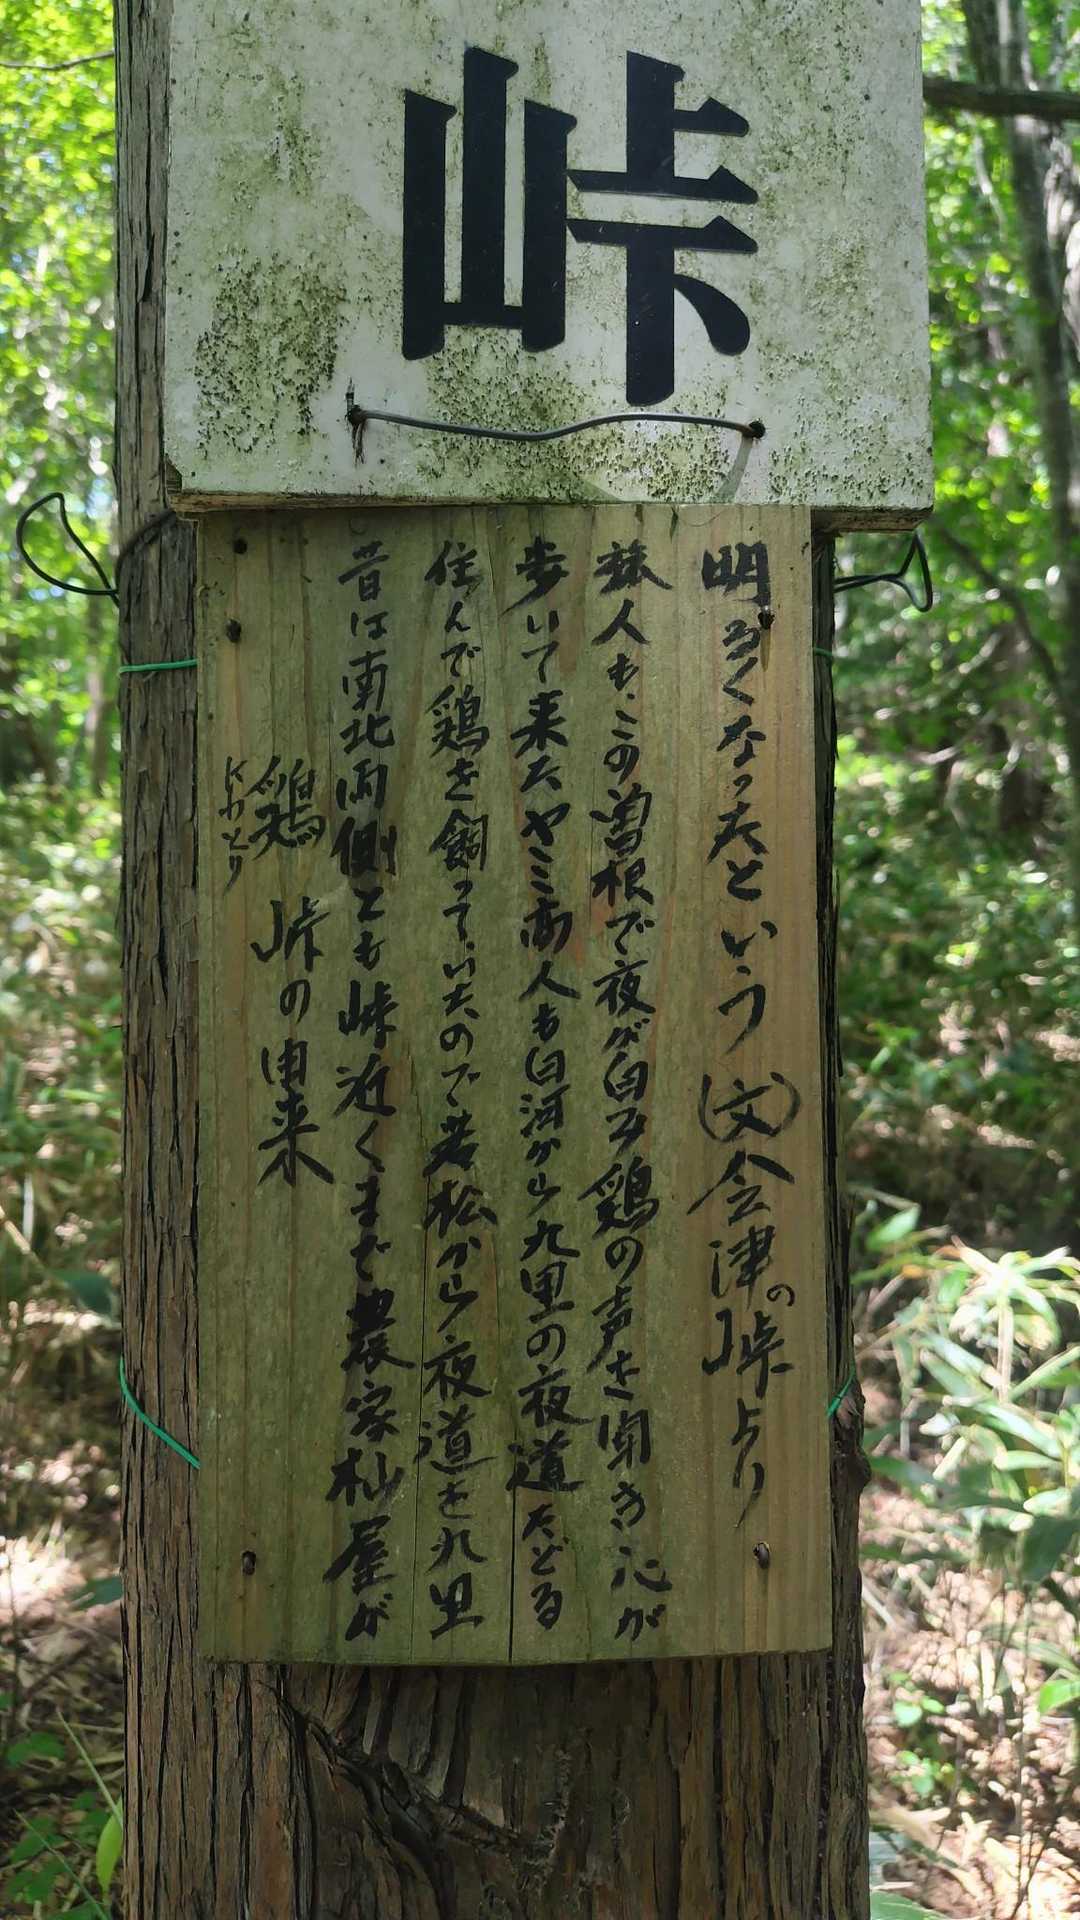 峠
にわとり
鶏峠の由来
昔は南北両側とも峠近くまで農家杣屋が
住んで鶏を飼っていたので若松から夜道を九里
歩いて来たヤミ商人も白河から九里の夜道たどる
旅人も、この曽根で夜が白み鶏の声を聞き心が
明るくなったという(文)会津の峠より